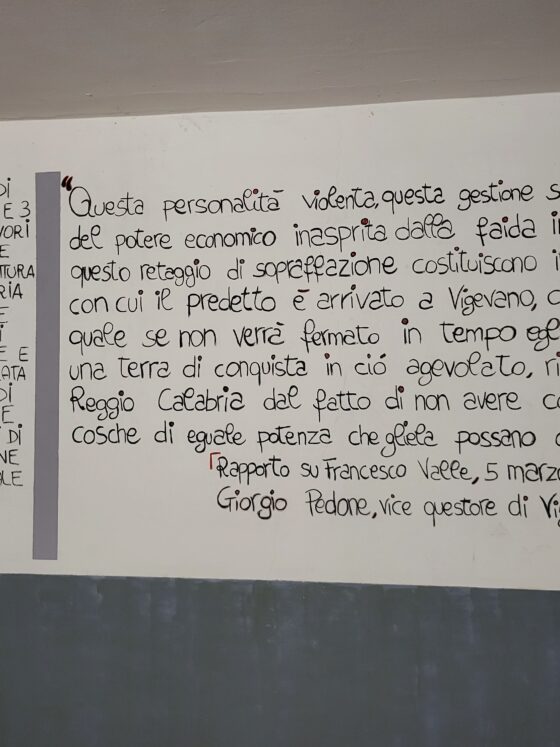 DI
E 3
VORI
E
TTURA
RIA
E
I
E E
ATA
DI
E
DI
NE
LE
"Questa personalità violenta, questa gestione s
del potere economico inasprita dalla faida i
questo retaggio di sopraffazione costituiscono i
con cui il predetto è arrivato a Vigevano,
quale se non verrà fermato in tempo egl
una terra di conquista in ciò agevolato, ri
Reggio Calabria dal fatto di non avere co
cosche di eguale potenza che gliela possano
Rapporto su Francesco Valle, 5 marzo
Giorgio Pedone, vice questore di Vi